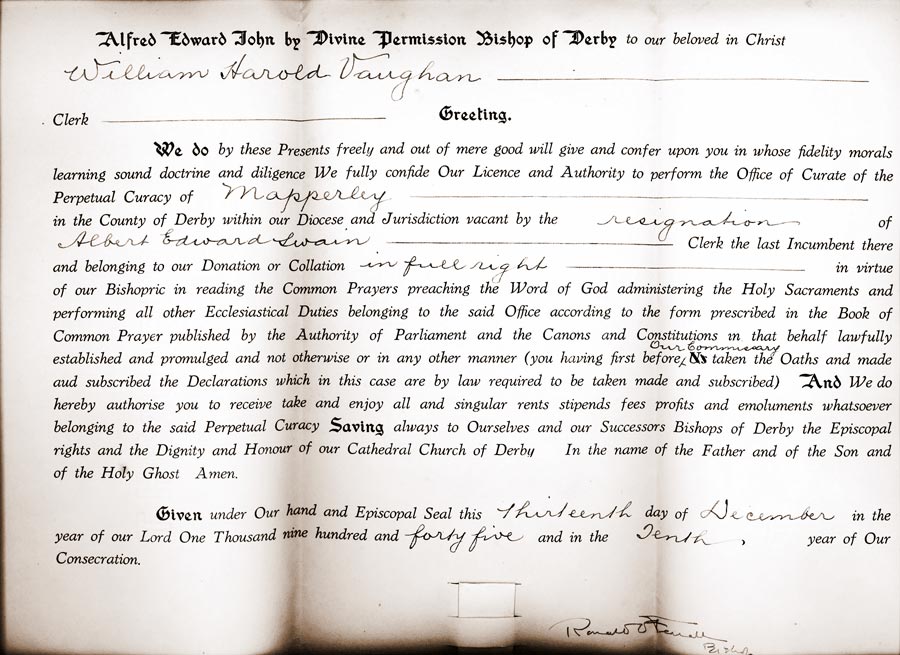 Alfred Edward John by Divine Permission Bishop of Derby to our beloved in Christ
William Harold Vaughan
Clerk Greeting.
We do by these Presents freely and out of mere good will give and confer upon you in whose fidelity morals
learning sound doctrine and diligence We fully confide Our Licence and Authority to perform the Office of Curate of the
Perpetual Curacy of Mapperley
in the County of Derby within our Diocese and Jurisdiction vacant by the resignation of
Albert Edward Swain Clerk the last Incumbent there
and belonging to our Donation or Collation in full right in virtue
of our Bishopric in reading the Common Prayers preaching the Word of God administering the Holy Sacraments and
performing all other Ecclesiastical Duties belonging to the said Office according to the form prescribed in the Book of
Common Prayer published by the Authority of Parliament and the Canons and Constitutions in that behalf lawfully
Our Commissary
established and promulged and not otherwise or in any other manner (you having first before Us taken the Oaths and made
aud subscribed the Declarations which in this case are by law required to be taken made and subscribed) And We do
hereby authorise you to receive take and enjoy all and singular rents stipends fees profits and emoluments whatsoever
belonging to the said Perpetual Curacy Saving always to Ourselves and our Successors Bishops of Derby the Episcopal
rights and the Dignity and Honour of our Cathedral Church of Derby In the name of the Father and of the Son and
of the Holy Ghost Amen.
Given under Our hand and Episcopal Seal this thirteenth day of December in the
year of our Lord One Thousand nine hundred and forty five and in the Tenth, year of Our
Consecration.
Ronald
Bishop